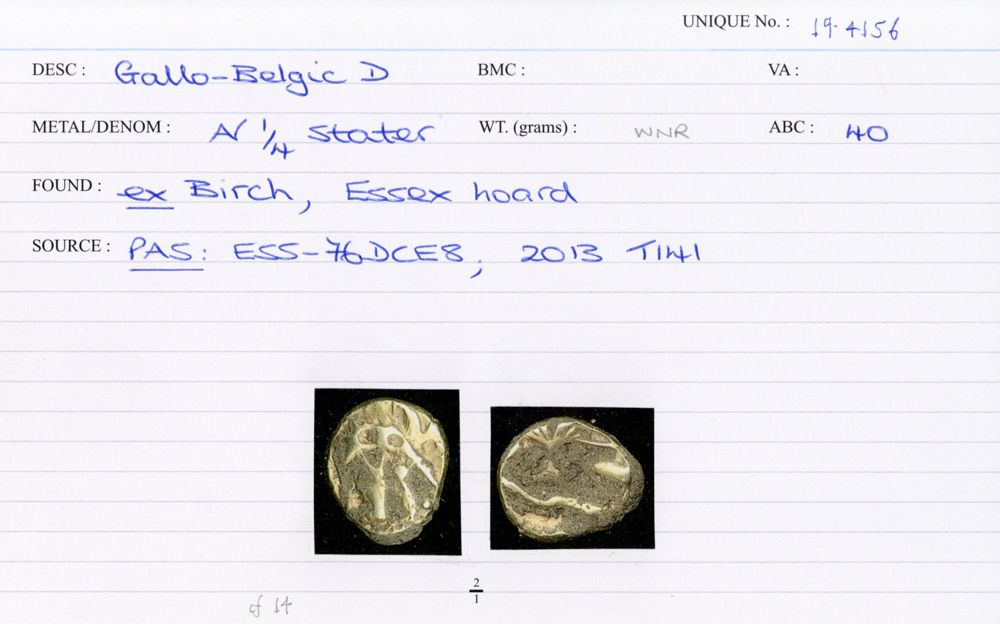 UNIQUE No. : 19.4156
DESC : Gallo-Belgic D BMC : VA :
METAL/DENOM : AV 1/4 stater WT. (grams) : WNR ABC : 40
FOUND : ex Birch, Essex hoard
SOURCE : PAS: ESS-76DCE8, 2013 T141
2
1
of 14